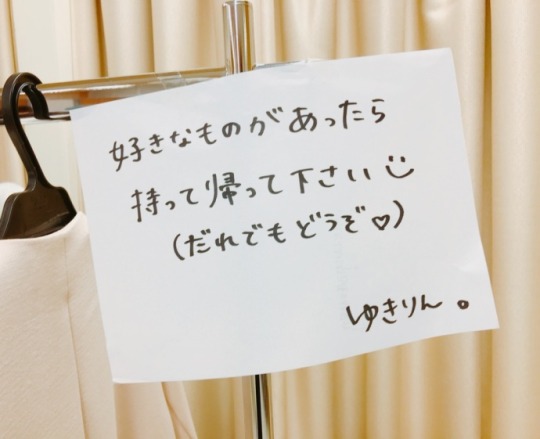 好きなものがあったら
持って帰って下さい
(だれでもどうぞ♡)
ゆきりん。